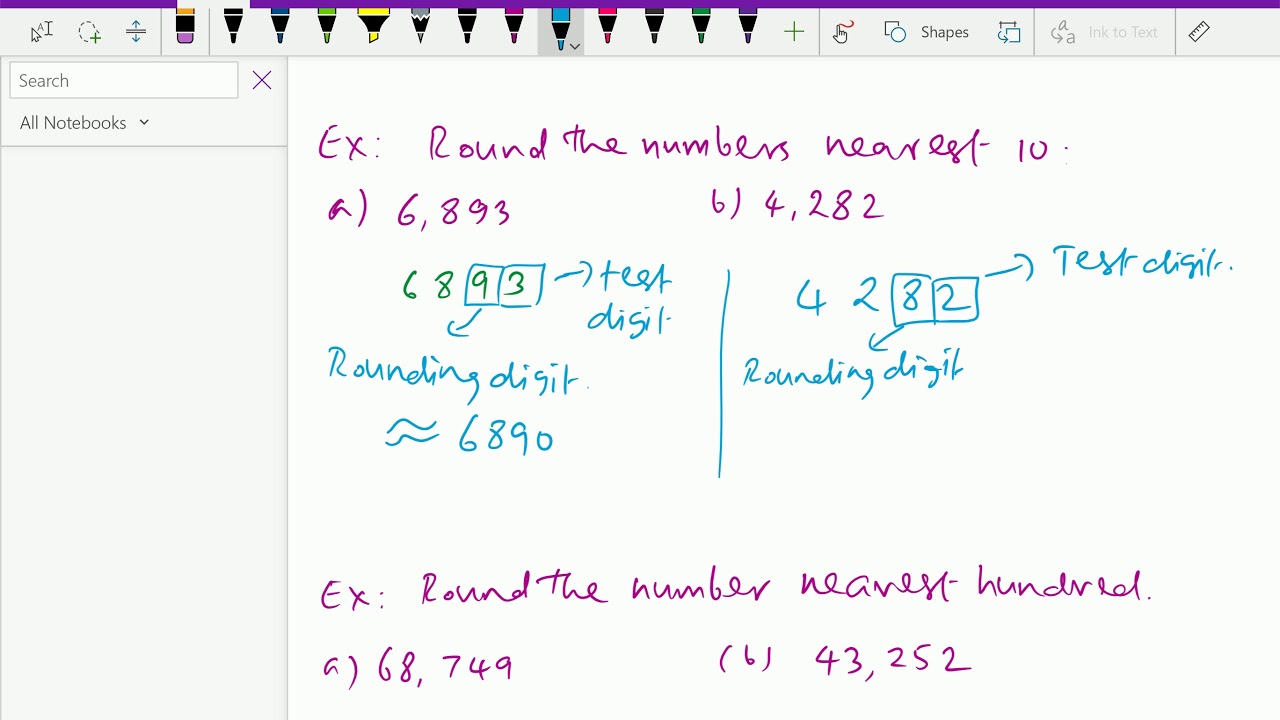 Shapes
Ink to Text
Search
All Notebooks
Ex: Round the numbers nearest 10.
a) 6,893
b) 4,282
6 8 9 3 → test
digit
Rounding digit.
≈ 6890
4 2 8 2 → Test digit.
Rounding digit
Ex: Round the number nearest hundred.
a) 68,749
(b) 43,252